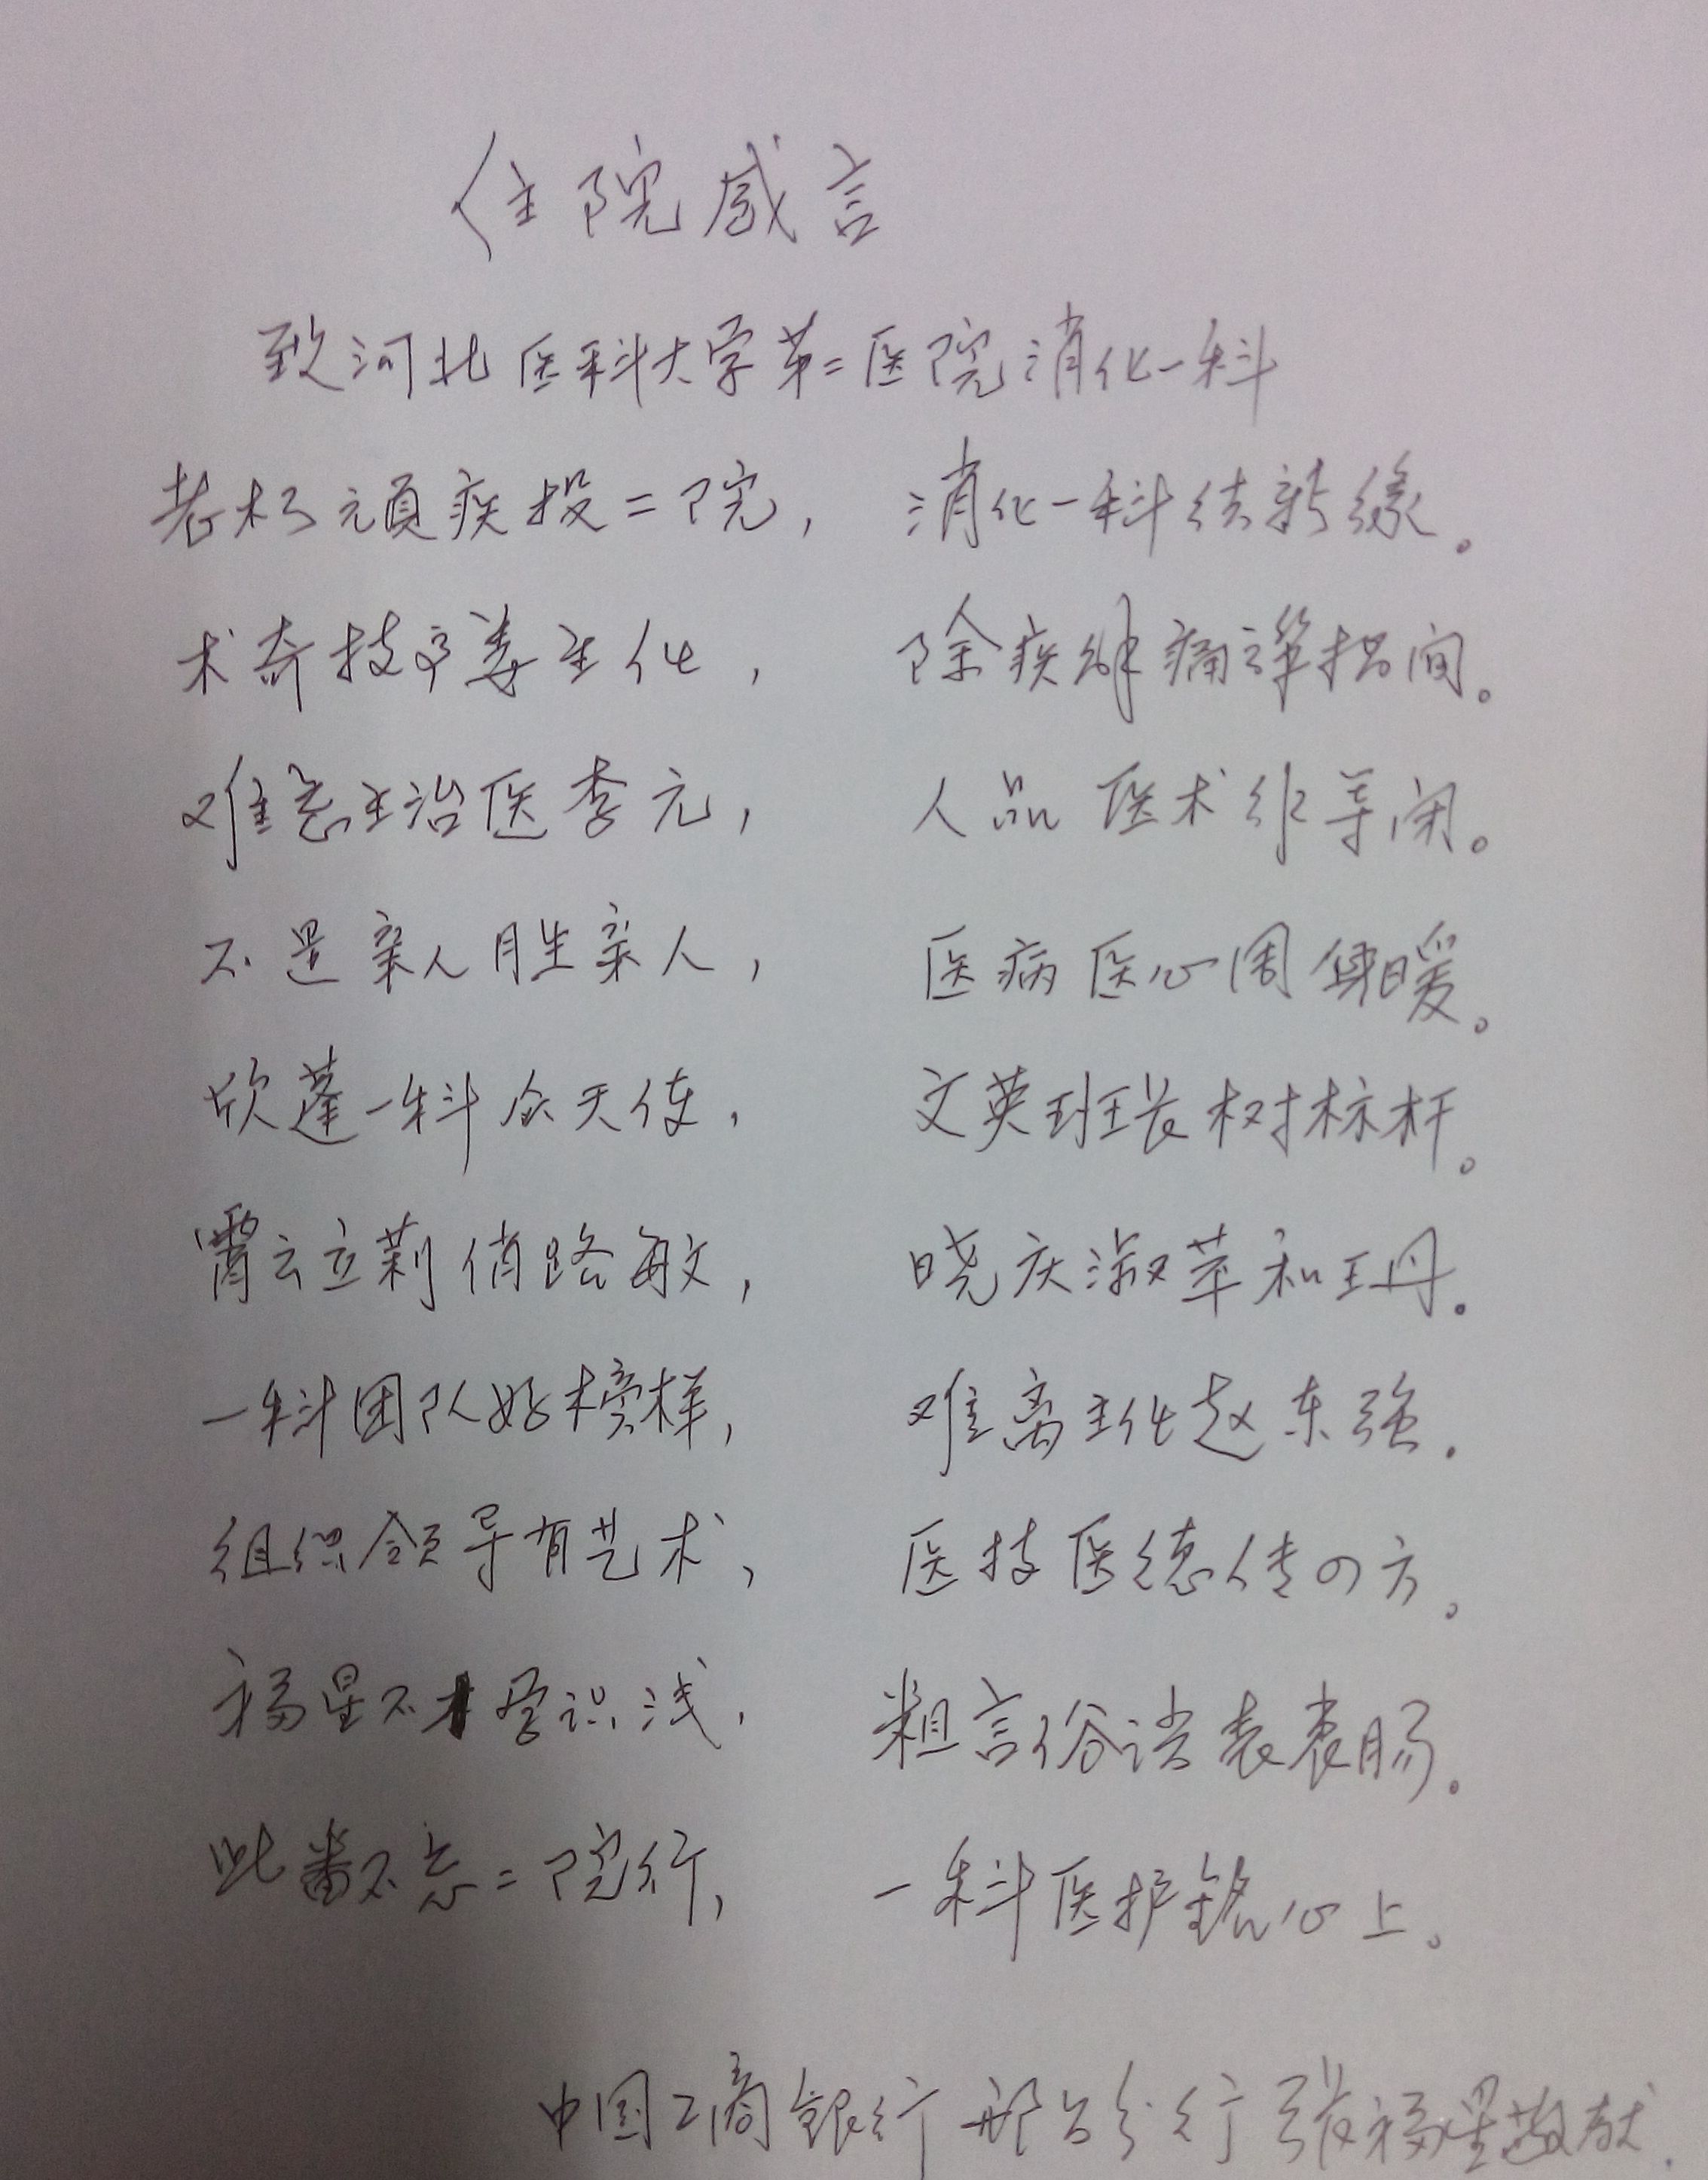 《住院感言
致河北医科大学第二医院消化一科
老朽顽疾投二院, 消化一科结新缘。
术奇技高姜主任, 除疾解痛谈招间。
难忘主治医李元, 人品医术非等闲。
不是亲人胜亲人, 医病医心周身暖。
欣蓬一科众天使, 文英班长树标杆。
霄云立莉俏路敏, 晓庆淑苹和王丹。
一科团队好榜样, 难离主任赵东强.
组织领导有艺术, 医技医德传四方。
福星不才学识浅, 粗言俗语表衷肠。
此番不忘二院行, 一科医护铭心上。
中国工商银行邢台分行张福星敬献.